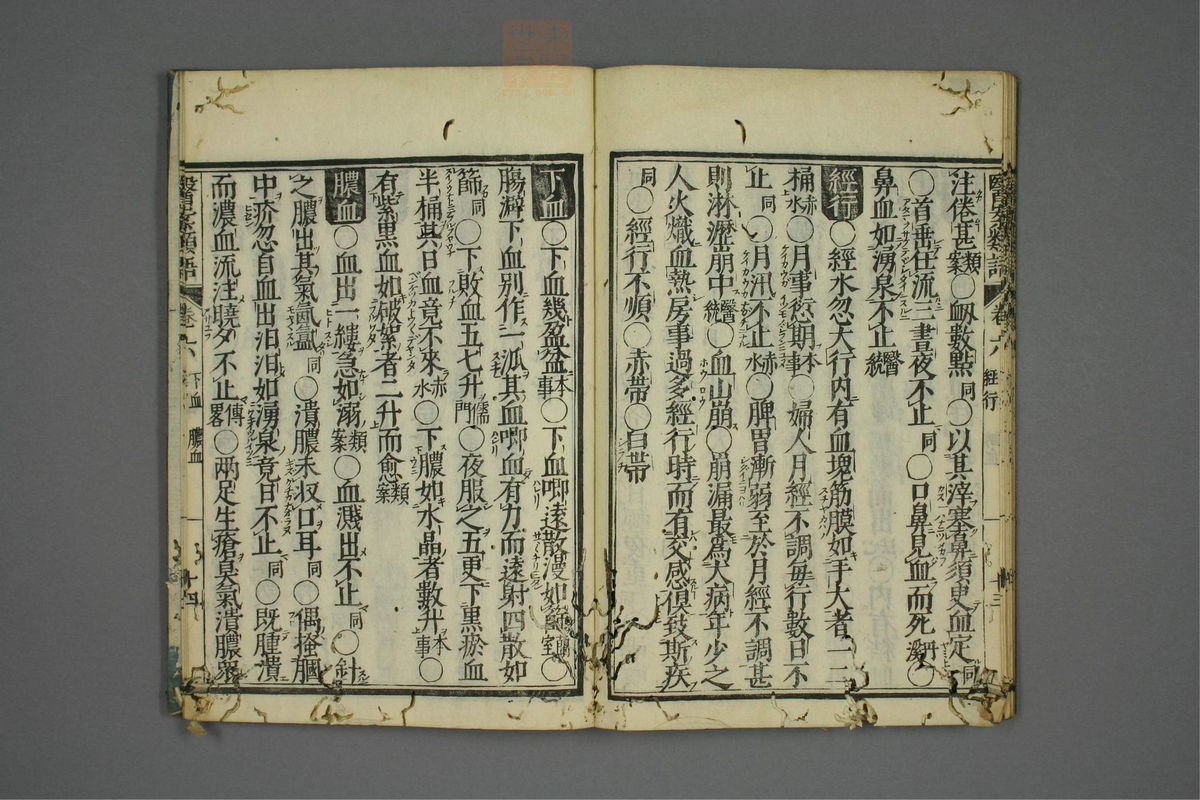 注倦甚類案○衂數點同○以其滓塞鼻須臾血定同
○首垂任流三晝夜不止同○口鼻見血而死○
鼻血如湧泉不止醫統
經行○經水忽大行内有血塊筋膜如手大者一二
桶赤水○月事愆期本事○婦人月經不調每行數日不
止同○月汛不止赤水○脾胃漸弱至於月經不調甚
則淋瀝崩中醫統○血山崩○崩漏最爲大病年少之
人火熾血熱房事過多經行時而有交感俱致斯疾
同○經行不順○赤帶○白帶
醫案類語 卷 六 經行 十三
下血○下血幾盈盆本事○下血喞遠散漫如篩蘭室○
腸澼下血別作一泒其血喞血有力而遠射四散如
篩同○下敗血五七升儒門○夜服之五更下黑瘀血
半桶其日血竟不來赤水○下膿如水晶者數升本事○
有紫黑血如破絮者二升而愈類案
膿血○血出一縷急如溺類案○血濺出不止同○針
之膿出其氣氤氳同○潰膿未収口耳同○偶搔膕
中疥忽自血出汨汨如湧泉竟日不止同○既腫潰
而濃血流注曉夕不止傳畧○兩足生瘡臭氣潰膿
醫案類語 卷 六 下血 膿血 十四